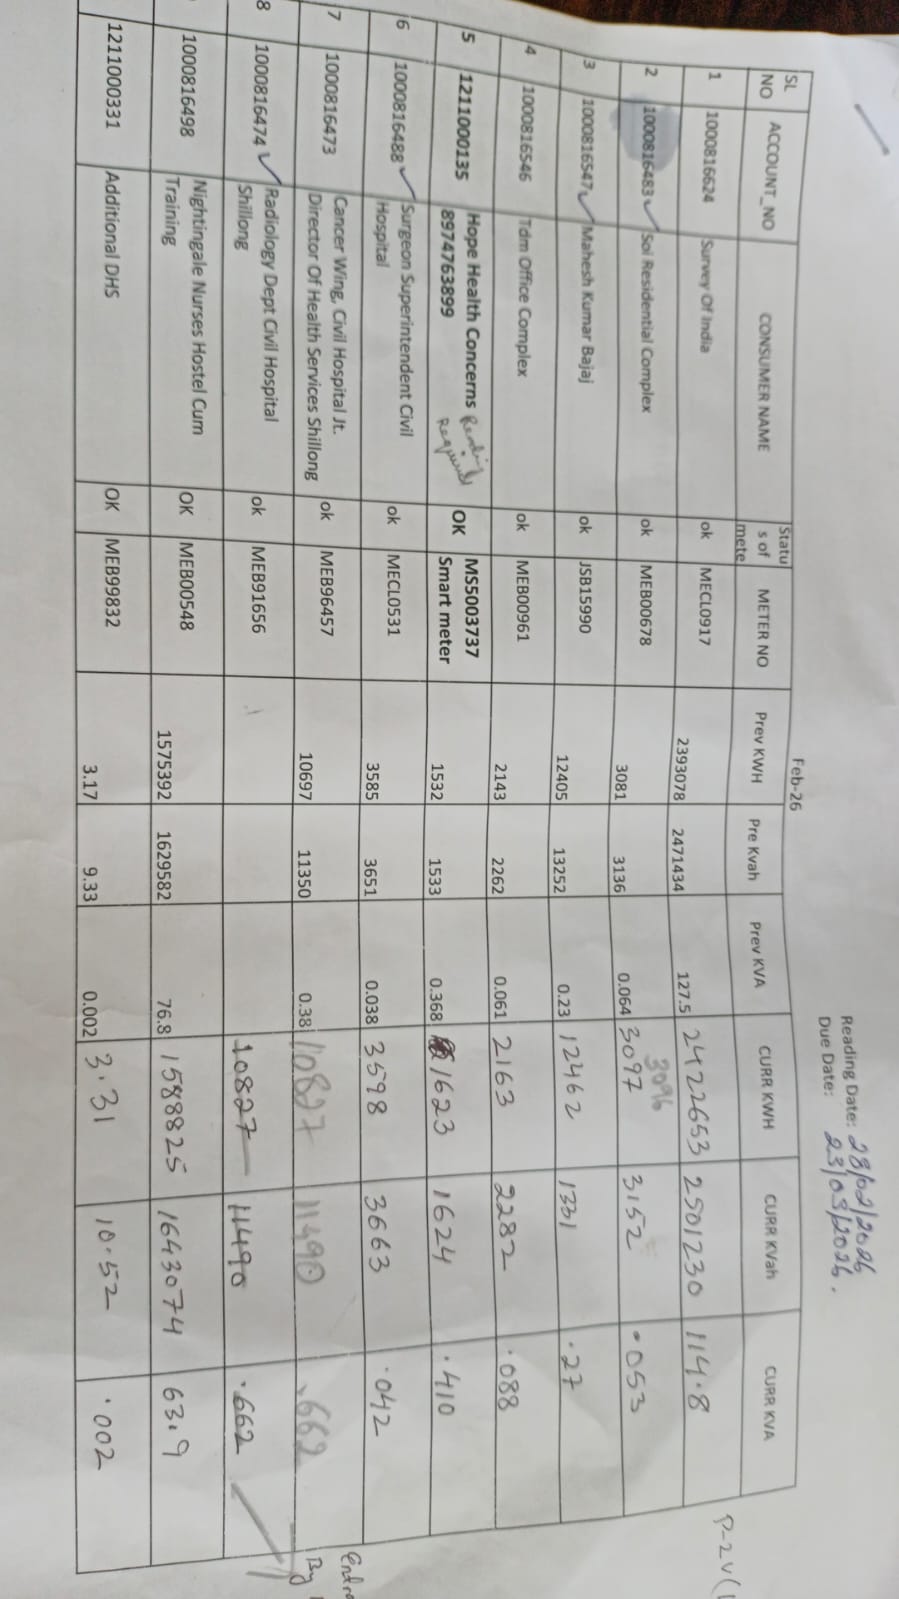 Reading Date: 28/02/2026
Due Date: 23/03/2026.
Feb-26
P-2V(
SL NO | ACCOUNT_NO | CONSUMER NAME | Statu s of mete | METER NO | Prev KWH | Pre Kvah | Prev KVA | CURR KWH | CURR KVah | CURR KVA
1 | 1000816624 | Survey Of India | ok | MECL0917 | 2393078 | 2471434 | 127.5 | 2422653 | 2501230 | 114.8
2 | 1000816483 ✓ | Soi Residential Complex | ok | MEB00678 | 3081 | 3136 | 0.064 | 3096 3097 | 3152 | .053
3 | 1000816547 ✓ | Mahesh Kumar Bajaj | ok | JSB15990 | 12405 | 13252 | 0.23 | 12462 | 1331 | .27
4 | 1000816546 | Tdm Office Complex | ok | MEB00961 | 2143 | 2262 | 0.061 | 2163 | 2282 | .088
5 | 1211000135 | Hope Health Concerns 8974763899 Reading Required | OK | MS5003737 Smart meter | 1532 | 1533 | 0.368 | 1623 | 1624 | .410
6 | 1000816488 ✓ | Surgeon Superintendent Civil Hospital | ok | MECL0531 | 3585 | 3651 | 0.038 | 3598 | 3663 | .042
7 | 1000816473 | Cancer Wing, Civil Hospital Jt. Director Of Health Services Shillong | ok | MEB96457 | 10697 | 11350 | 0.38 | 10827 | 11490 | .662
By
8 | 1000816474 ✓ | Radiology Dept Civil Hospital Shillong | ok | MEB91656 | 10827 | 11490 | .662
1000816498 | Nightingale Nurses Hostel Cum Training | OK | MEB00548 | 1575392 | 1629582 | 76.8 | 1588825 | 1643074 | 63.9
1211000331 | Additional DHS | OK | MEB99832 | 3.17 | 9.33 | 0.002 | 3.31 | 10.52 | .002